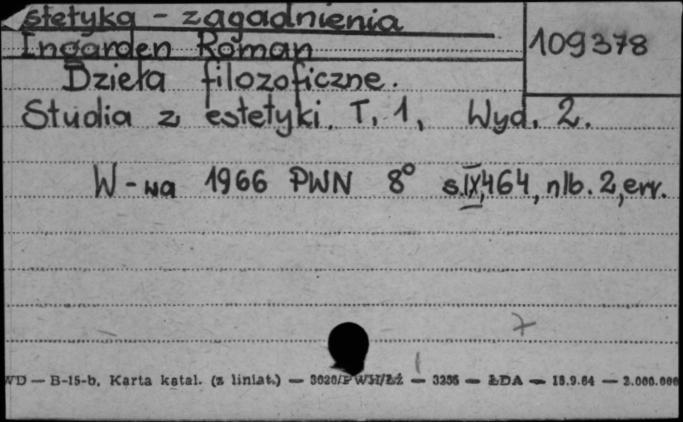 stetyka - zagadnienia
Ingarden Roman
109378
Dzieła filozoficzne.
Studia z estetyki. T. 1, Wyd. 2.
W-wa 1966 PWN 8° s. IX, 464, nlb. 2, err.
7
WD — B-15-b. Karta katal. (z liniat.) — 3020/PWH/ŁŻ — 3235 — ŁDA — 18.9.64 — 2.000.000